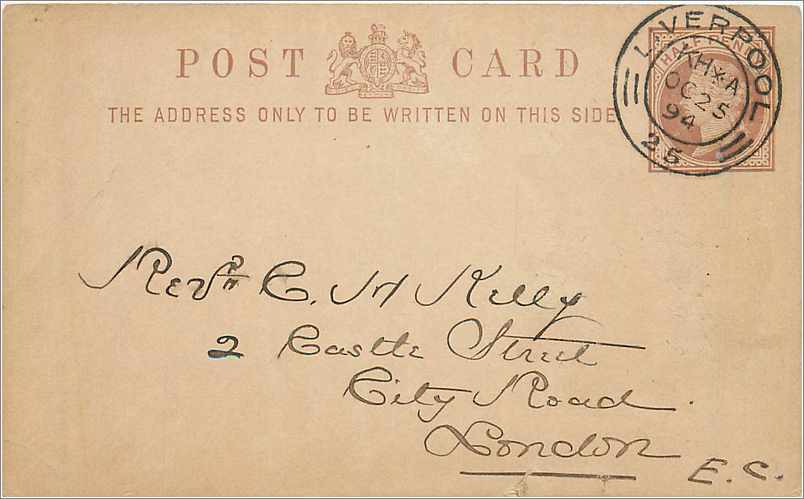 POST CARD
THE ADDRESS ONLY TO BE WRITTEN ON THIS SIDE
HALF PENNY
LIVERPOOL
OC 25
94
25
Revd C. H Kelly
2 Castle Street
City Road.
London
E.C.